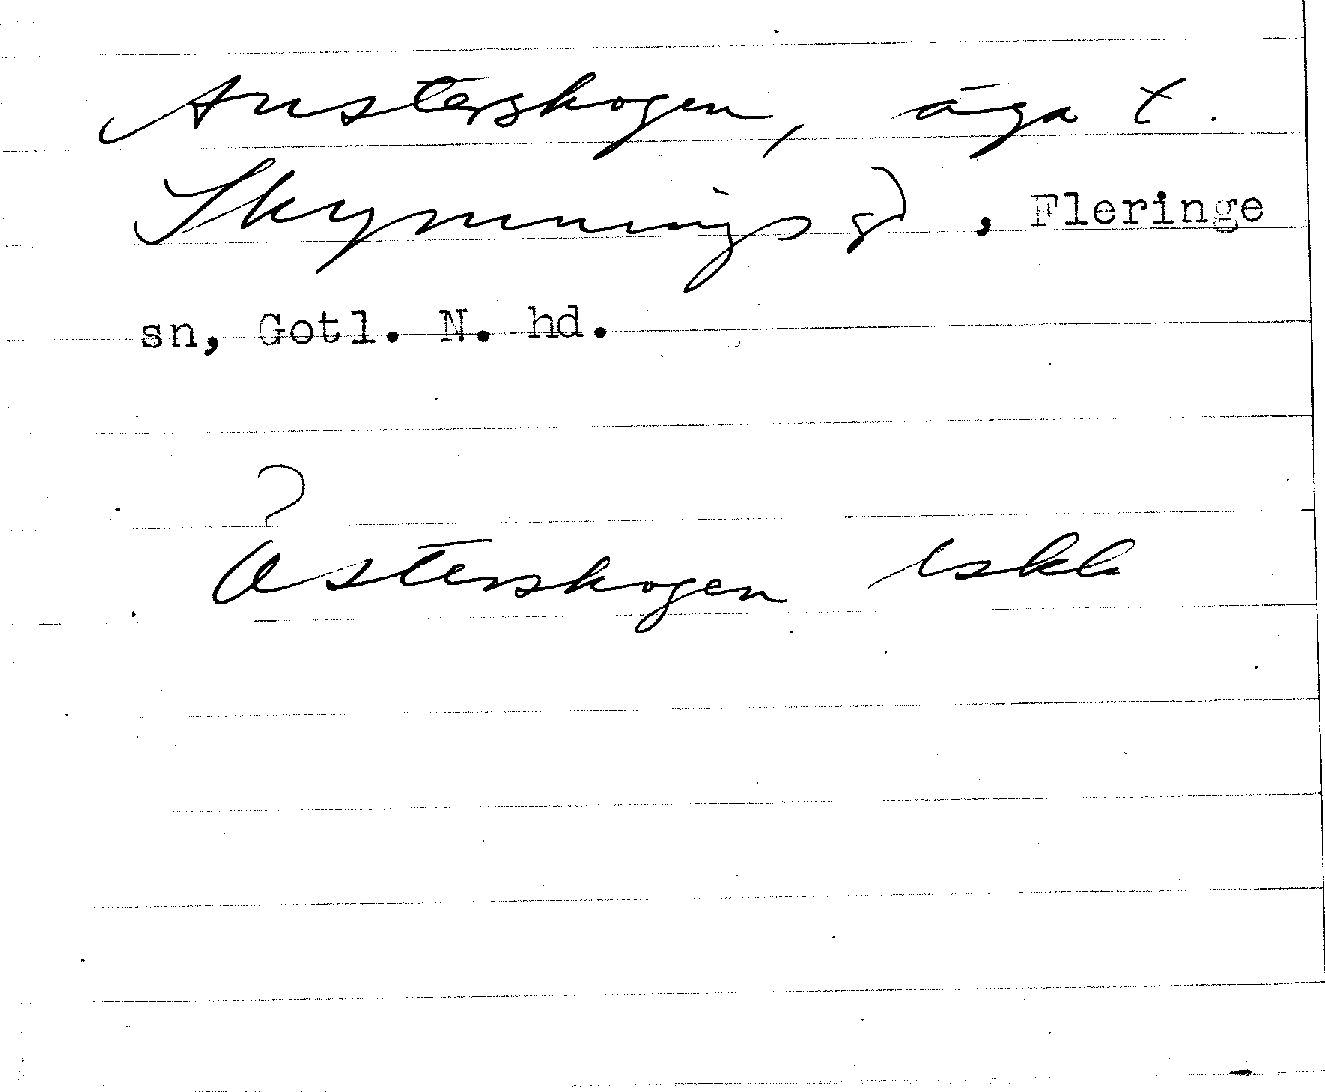 Austerskogen, äga t.
Skymmings gd, Fleringe
sn, Gotl. N. hd.
?
Österskogen iskk